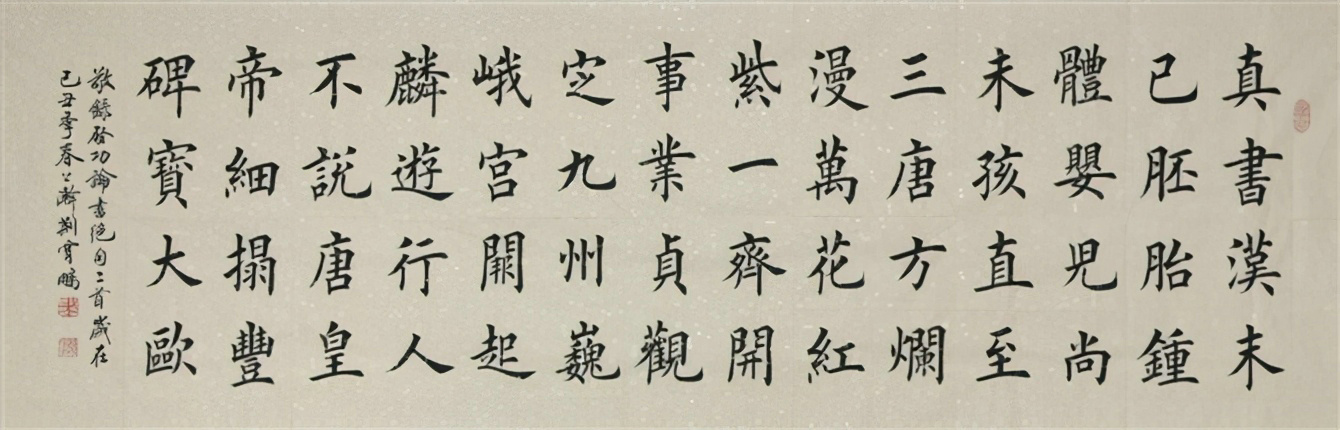 真書漢末
已胚胎鍾
體嬰兒尚
未孩直至
三唐方爛
漫萬花紅
紫一齊開
事業貞觀
㝎九州巍
峨宮闕起
麟遊行人
不說唐皇
帝細搨豐
碑寶大歐
敬錄啓功論書絕句二首歲在
己丑季春荊霄鵬